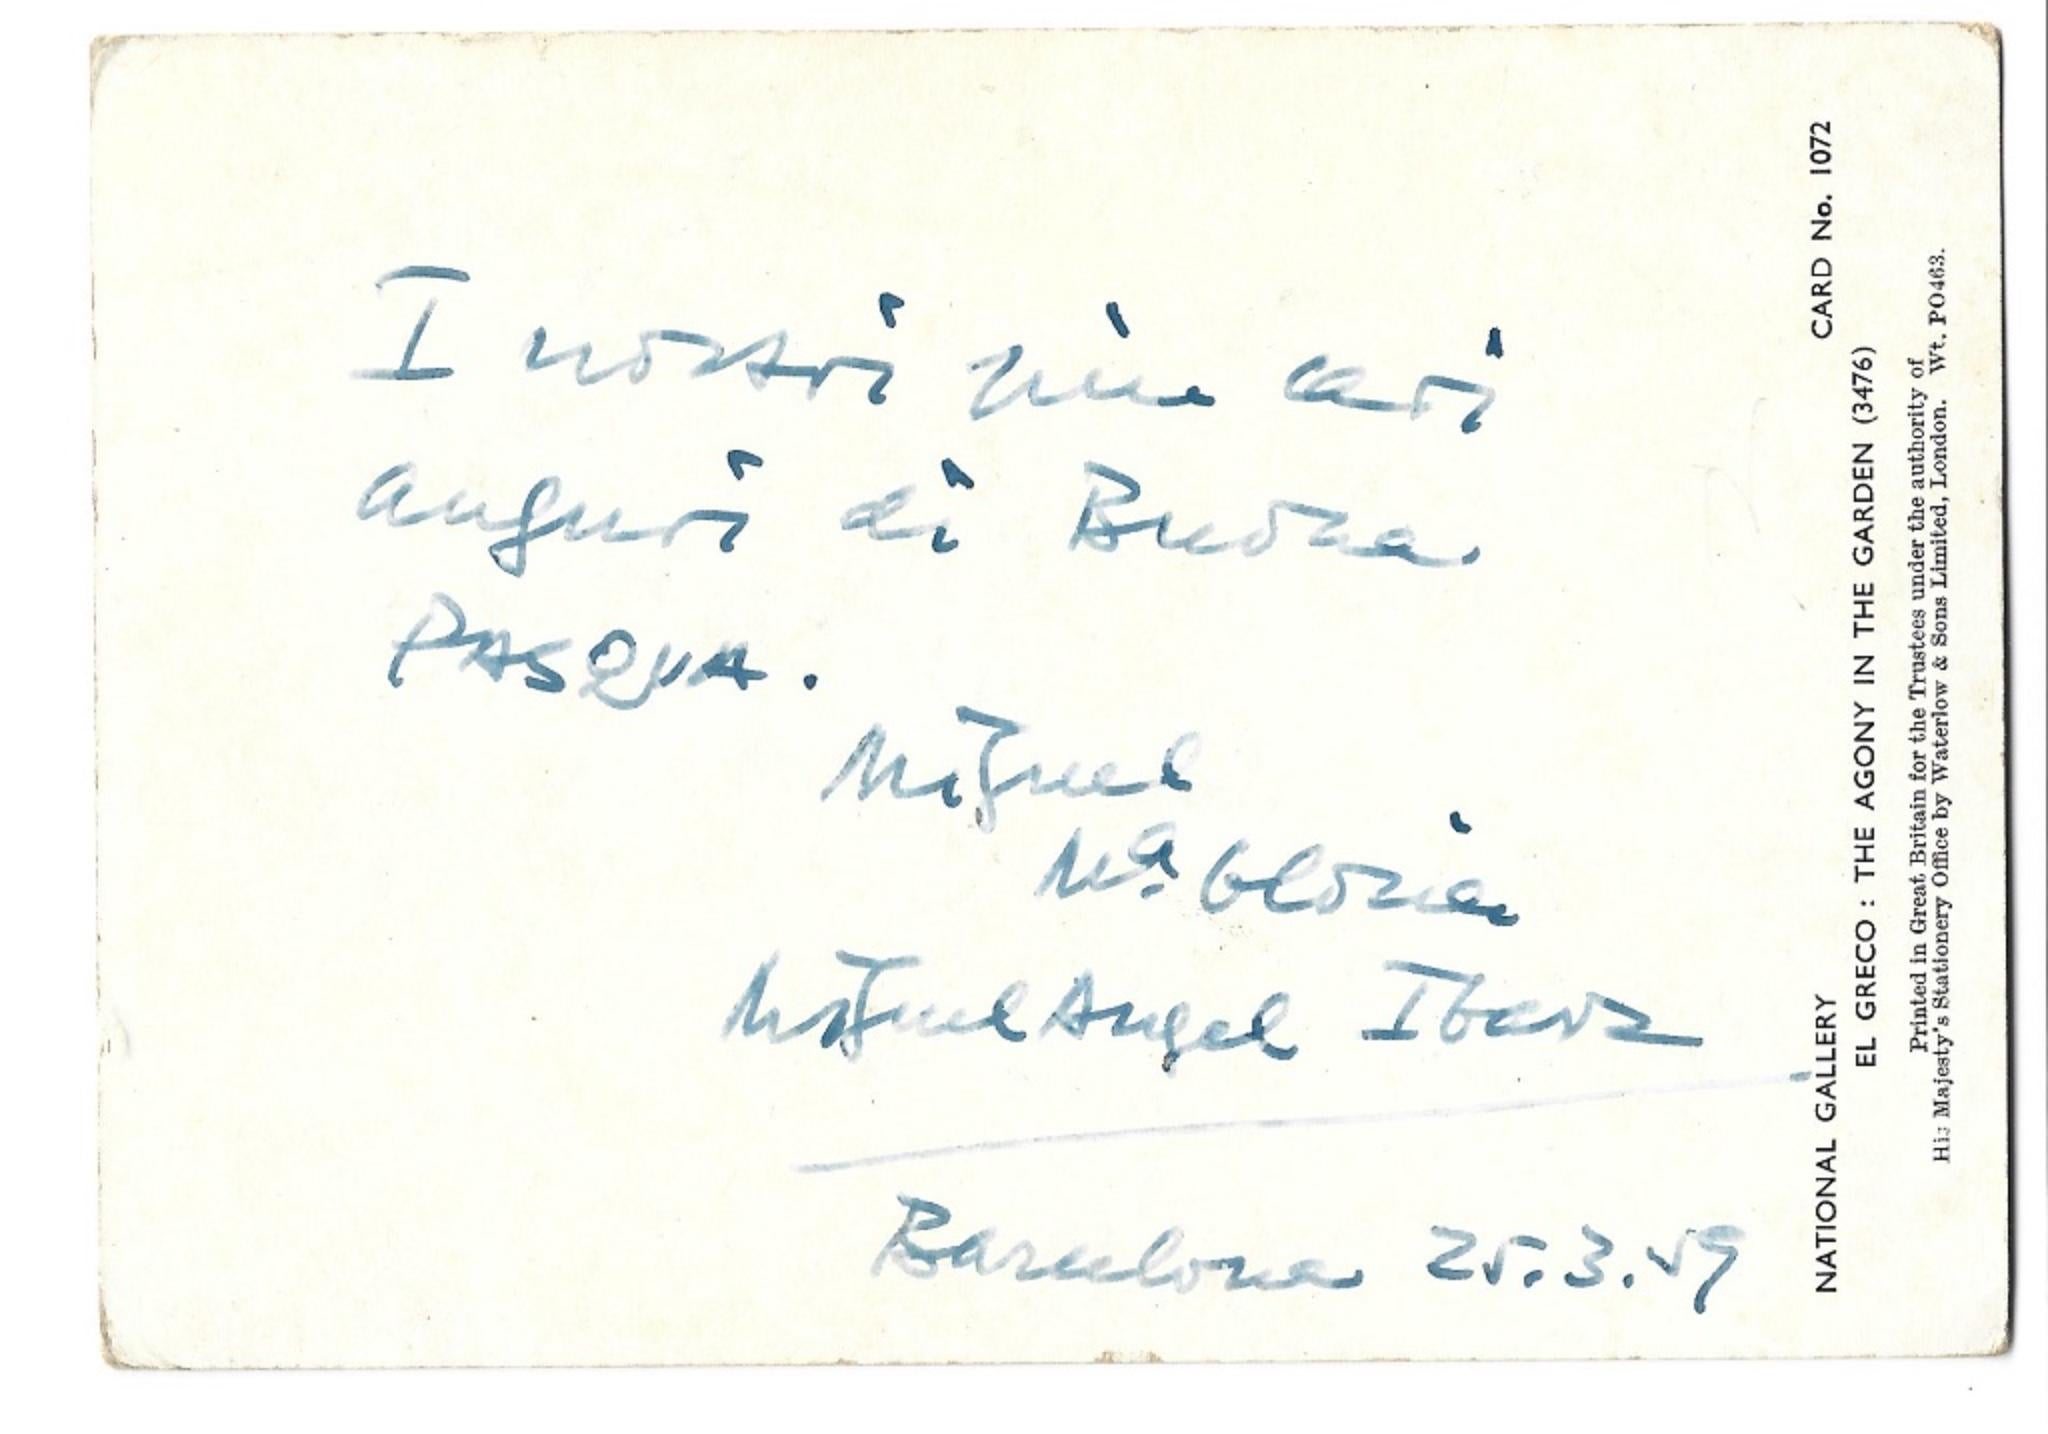 I nostri più cari
auguri di Buona
PASQUA.
Miguel
Mª. Gloria
Miguel Angel Ibarz
Barcelona 25.3.59
NATIONAL GALLERY CARD No. 1072
EL GRECO : THE AGONY IN THE GARDEN (3476)
Printed in Great Britain for the Trustees under the authority of
His Majesty's Stationery Office by Waterlow & Sons Limited, London. Wt. PO463.